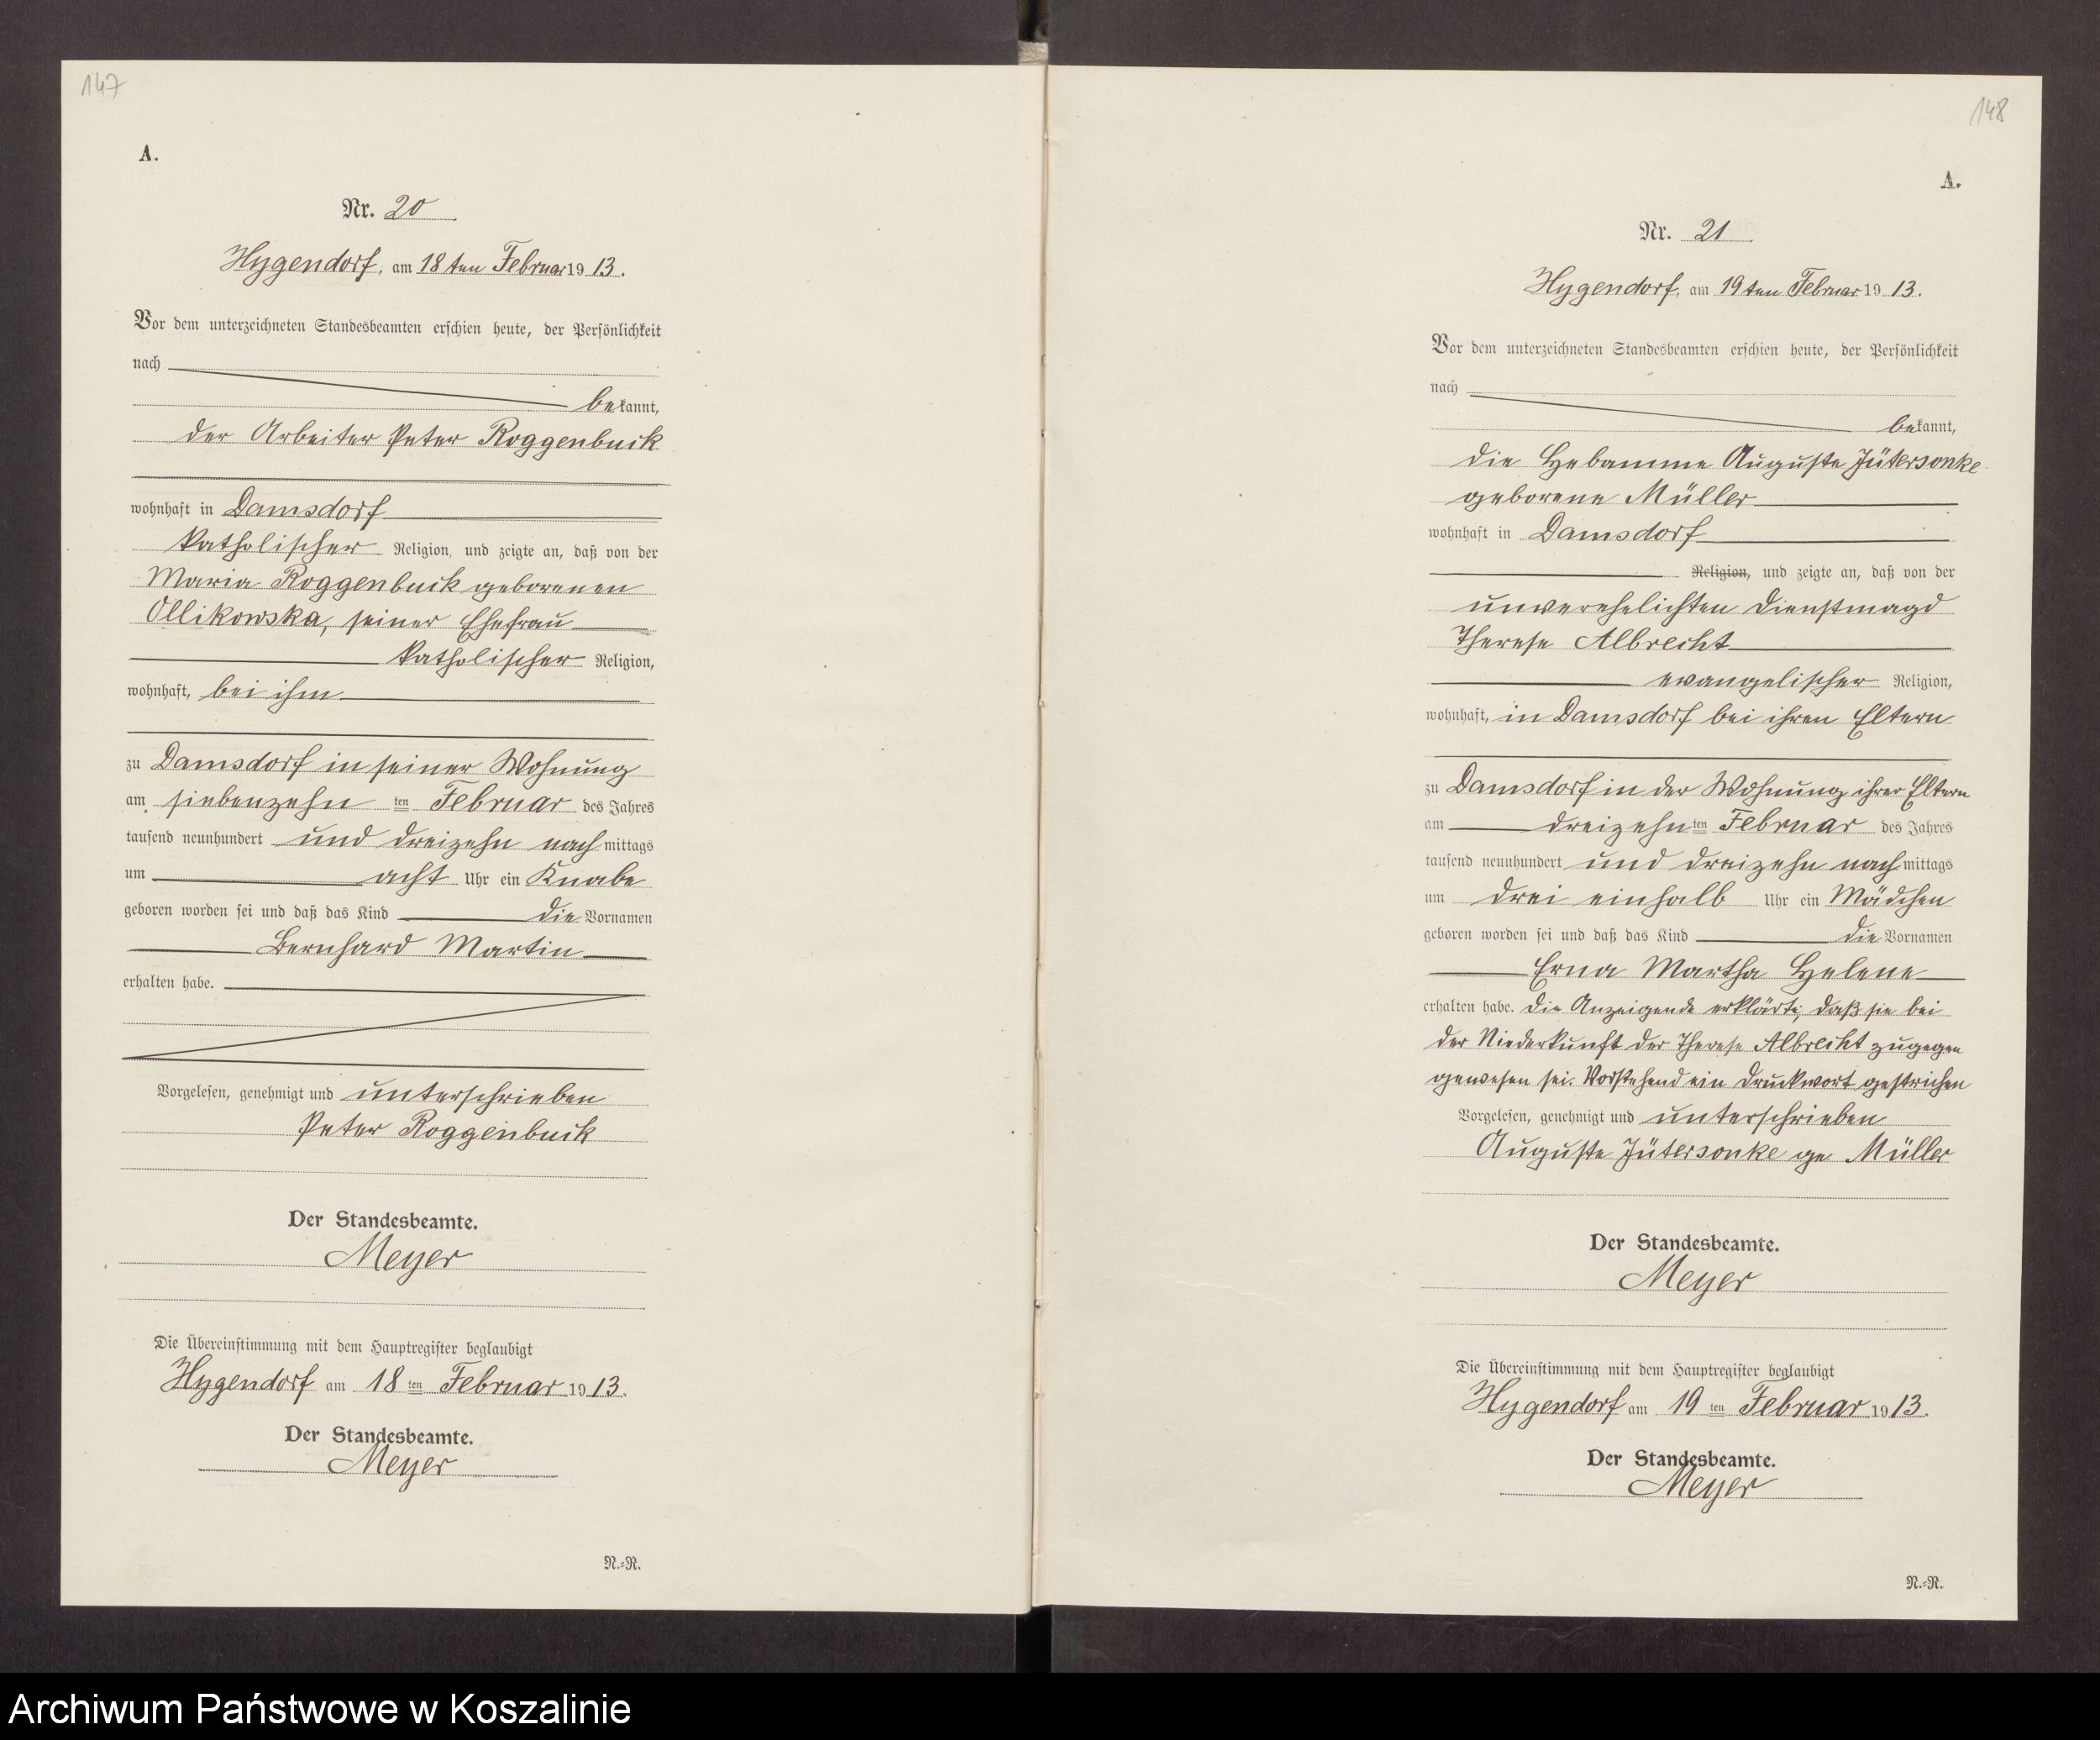 147
A.
Nr. 20
Hygendorf, am 18ten Februar 1913.
Vor dem unterzeichneten Standesbeamten erschien heute, der Persönlichkeit
nach
bekannt,
der Arbeiter Peter Roggenbuck
wohnhaft in Damsdorf
katholischer Religion, und zeigte an, daß von der
Maria Roggenbuck geborenen
Ollikowska, seiner Ehefrau
katholischer Religion,
wohnhaft, bei ihm
zu Damsdorf in seiner Wohnung
am siebenzehn ten Februar des Jahres
tausend neunhundert und dreizehn nachmittags
um acht Uhr ein Knabe
geboren worden sei und daß das Kind die Vornamen
Bernhard Martin
erhalten habe.
Vorgelesen, genehmigt und unterschrieben
Peter Roggenbuck
Der Standesbeamte.
Meyer
Die Übereinstimmung mit dem Hauptregister beglaubigt
Hygendorf am 18 ten Februar 1913.
Der Standesbeamte.
Meyer
N.=R.
148
A.
Nr. 21
Hygendorf, am 19ten Februar 1913.
Vor dem unterzeichneten Standesbeamten erschien heute, der Persönlichkeit
nach
bekannt,
die Hebamme Auguste Jütersonke
geborene Müller
wohnhaft in Damsdorf
Religion, und zeigte an, daß von der
unverehelichten Dienstmagd
Therese Albrecht
evangelischer Religion,
wohnhaft, in Damsdorf bei ihren Eltern
zu Damsdorf in der Wohnung ihrer Eltern
am dreizehn ten Februar des Jahres
tausend neunhundert und dreizehn nachmittags
um drei einhalb Uhr ein Mädchen
geboren worden sei und daß das Kind die Vornamen
Erna Martha Helene
erhalten habe. Die Anzeigende erklärte, daß sie bei
der Niederkunft der Therese Albrecht zugegen
gewesen sei. Vorstehend ein Druckwort gestrichen
Vorgelesen, genehmigt und unterschrieben
Auguste Jütersonke ge Müller
Der Standesbeamte.
Meyer
Die Übereinstimmung mit dem Hauptregister beglaubigt
Hygendorf am 19 ten Februar 1913.
Der Standesbeamte.
Meyer
N.=R.
Archiwum Państwowe w Koszalinie